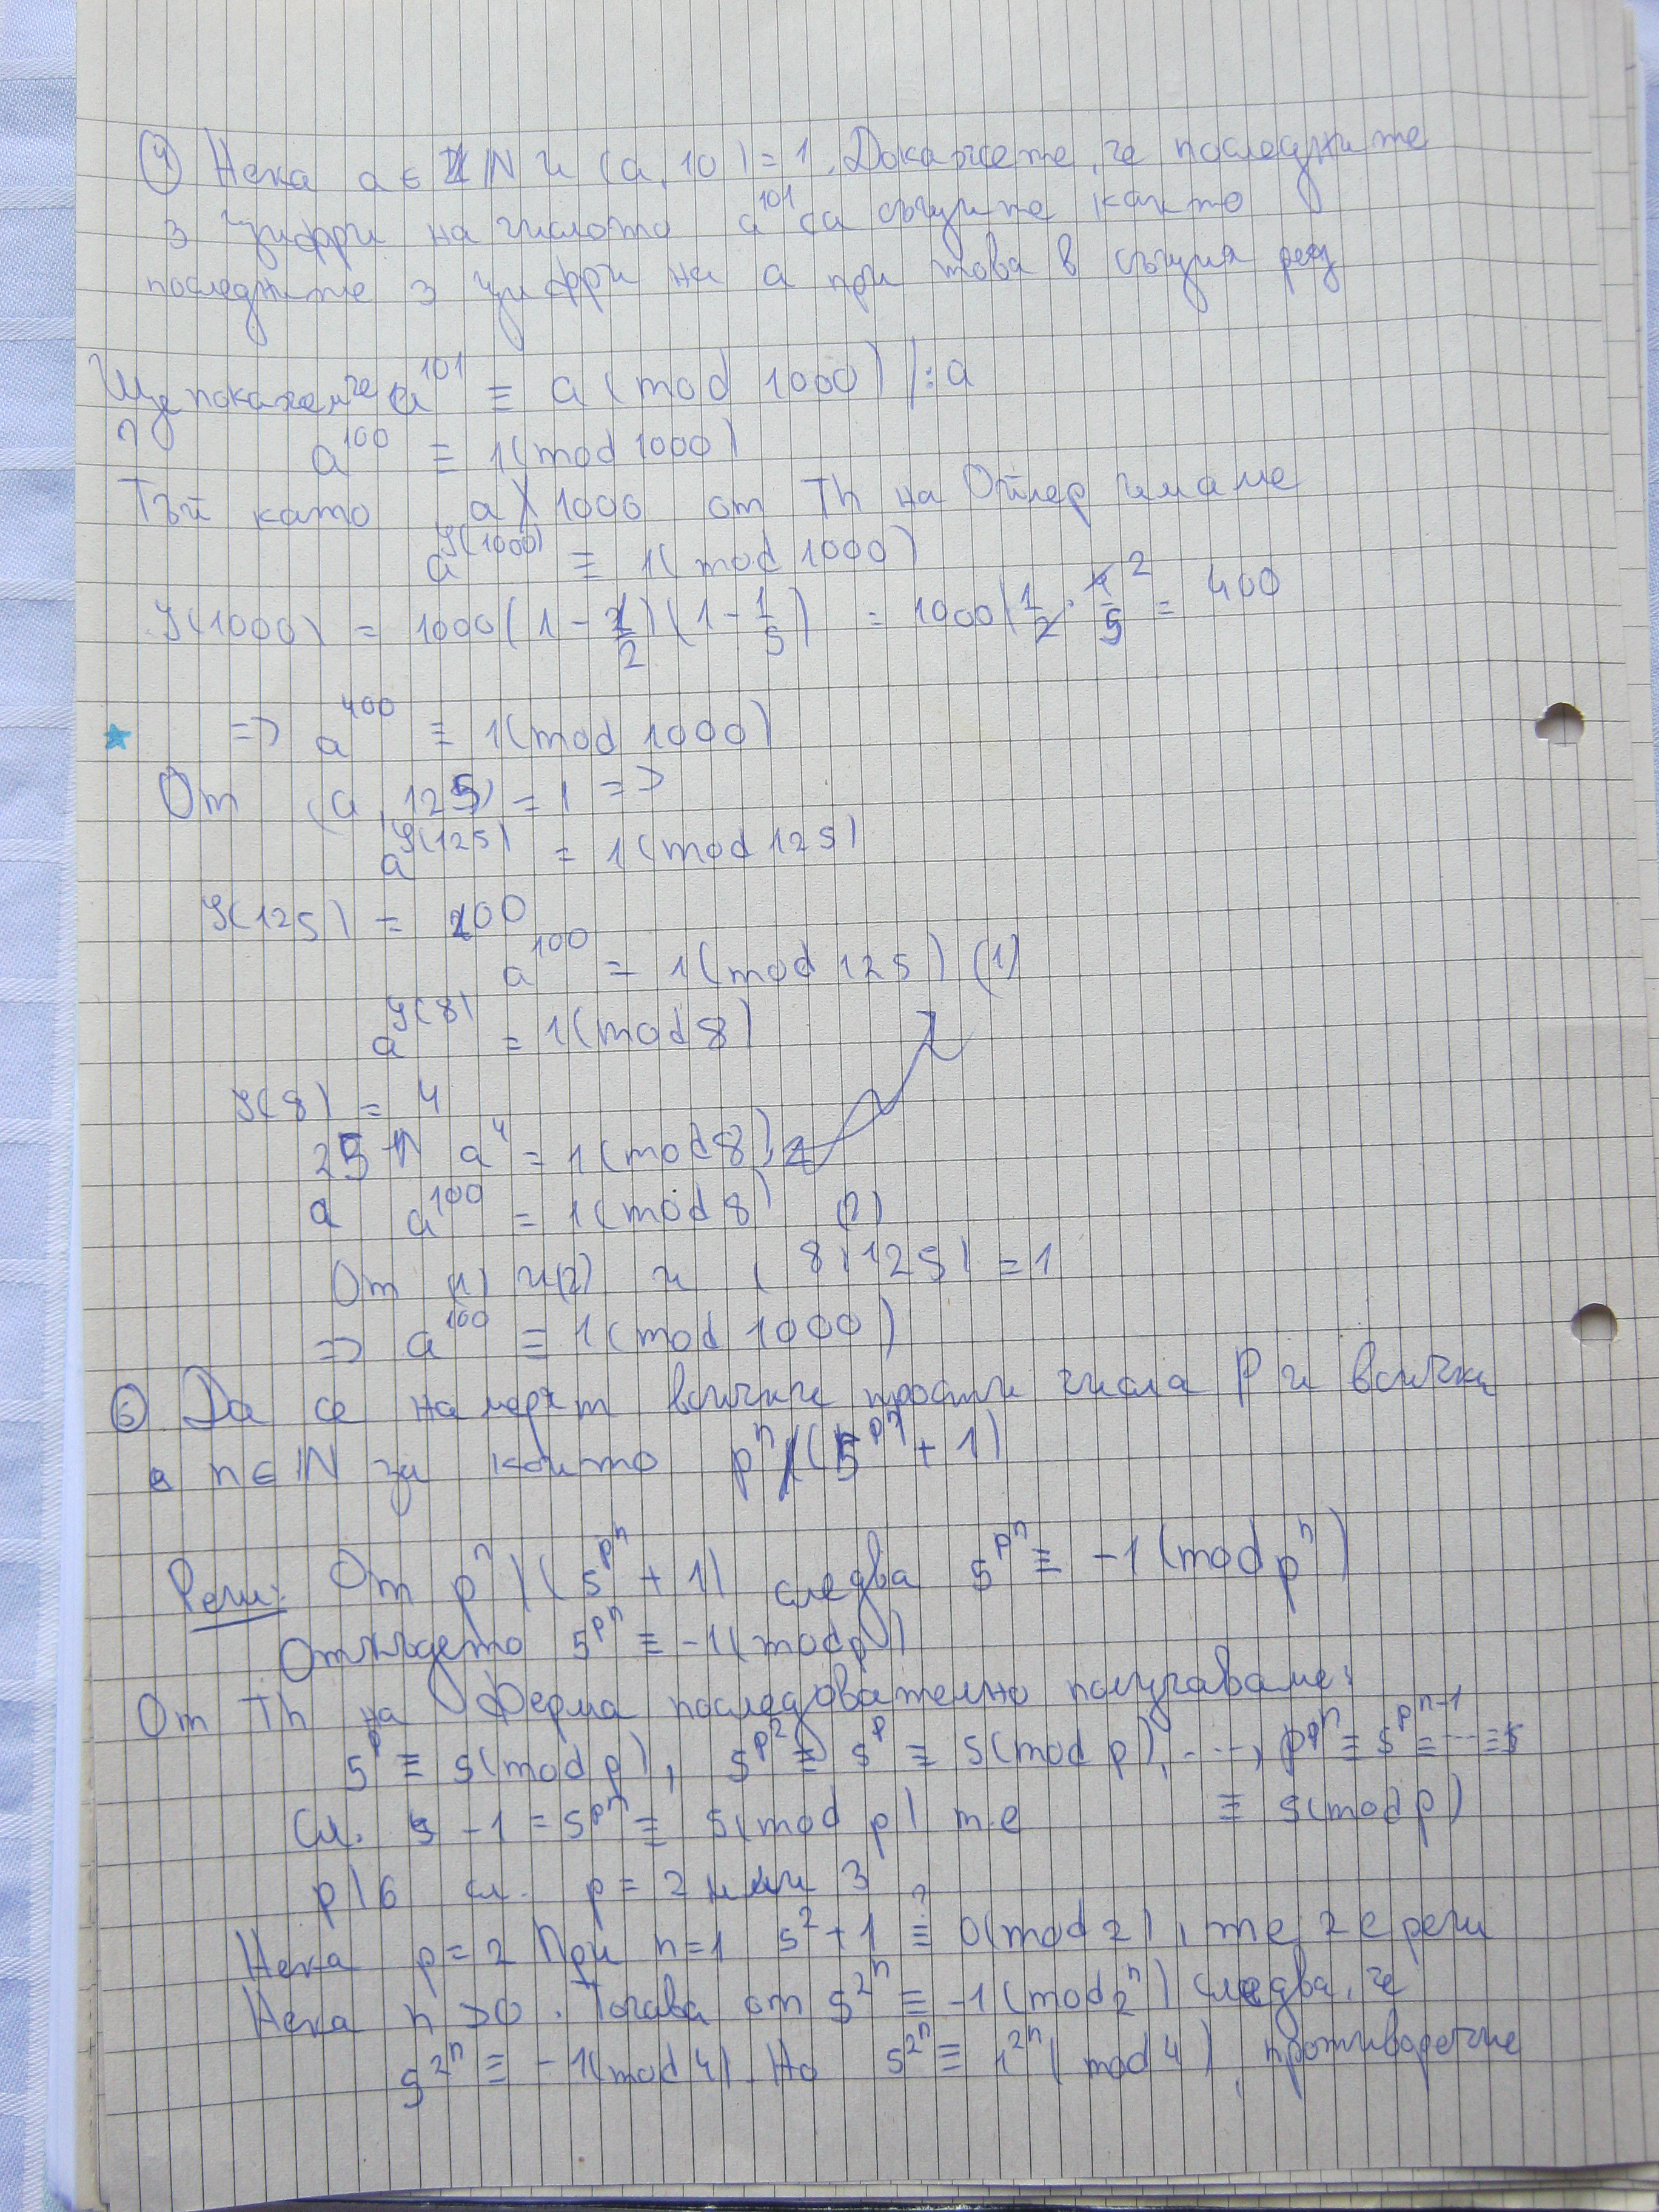 ④ Нека a ∈ ℕ и (a, 10) = 1. Докажете, че последните
3 цифри на числото a^101 са същите както
последните 3 цифри на a при това в същия ред
Ще покажем че a^101 ≡ a (mod 1000) /:a
a^100 ≡ 1 (mod 1000)
Тъй като a ∤ 1000 от Th на Ойлер имаме
a^φ(1000) ≡ 1 (mod 1000)
φ(1000) = 1000(1 - 1/2)(1 - 1/5) = 1000(1/2 · 4/5 = 400
=> a^400 ≡ 1 (mod 1000)
От (a, 125) = 1 =>
a^φ(125) = 1 (mod 125)
φ(125) = 100
a^100 = 1 (mod 125) (1)
a^φ(8) = 1 (mod 8)
φ(8) = 4
a^4 = 1 (mod 8)
a a^100 = 1 (mod 8) (2)
От (1) и (2) и (8, 125) = 1
=> a^100 ≡ 1 (mod 1000)
⑥ Да се намерят всички прости числа p и всички
n ∈ ℕ за които p^n / (5^p^n + 1)
Реш: От p^n | (5^p^n + 1) следва 5^p^n ≡ -1 (mod p^n)
Откъдето 5^p^n ≡ -1 (mod p)
От Th на Ферма последователно получаваме:
5^p ≡ 5 (mod p), 5^p^2 ≡ 5^p ≡ 5 (mod p), ..., p^p^n ≡ 5^p^n-1 ≡ ... ≡ 5
Сл. -1 = 5^p^n ≡ 5 (mod p) т.е ≡ 5 (mod p)
p | 6 сл. p = 2 или 3
Нека p = 2 При n = 1 5^2 + 1 ≡ 0 (mod 2), т.е 2 е реш
Нека n > 0. Тогава от 5^2^n ≡ -1 (mod 2^n) следва, че
5^2^n ≡ -1 (mod 4). Но 5^2^n ≡ 1^2^n (mod 4), противоречие